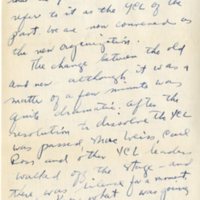 refer to it as the YCL of the
past. We are now convened as
the new organization.
The change between the old
and new although it was a
matter of a few minutes was
quite dramatic. After the
resolution to dissolve the YCL
was passed Mac Weiss, Carl
Ross and other YCL leaders
walked off the stage and
there was silence for a moment.
what was going